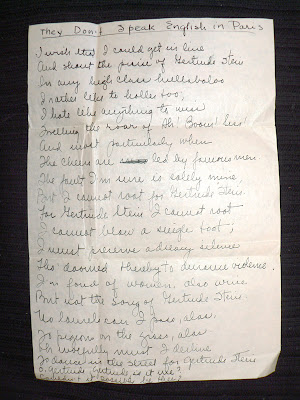 They Don't Speak English in Paris
I wish that I could get in line
And shout the praise of Gertrude Stein
In any high class hullabaloo
I rather like to holler too,
I hate like anything to miss
Swelling the roar of Ah! Boom! Siss!
And most particularly when
The cheers are led by famous men
The fault I'm sure is solely mine,
But I cannot root for Gertrude Stein
For Gertrude Stein I cannot root
I cannot blow a single toot;
I must preserve a dreary silence
Tho doomed thereby to durance vilence.
I am fond of women, also wine
But not the song of Gertrude Stein
No laurels can I toss, alas
To pigeons on the grass, alas
Oh woefully must I decline
To dance in the street for Gertrude Stein
O, Gertrude, Gertrude is it me?